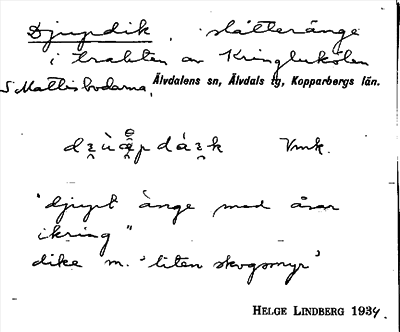 Djupdik, slåtteränge
i trakten av Kringlukölen
S Mattisbodarna, Älvdalens sn, Älvdals tg, Kopparbergs län.
Vmk.
"djupt änge med åsar
ikring"
dike m. 'liten skogsmyr'
HELGE LINDBERG 1934.